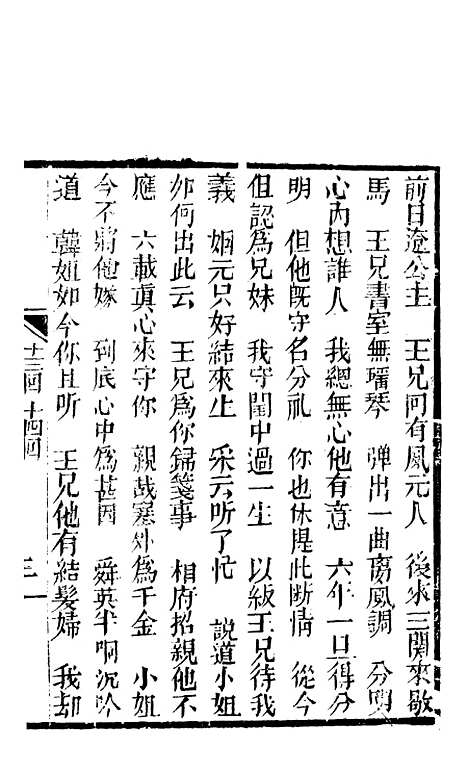 前日遼公主　王兄何有鳳元人　後來三關來敬
馬　王兄書室無瑤琴　彈出一曲商風調　分明
心內想誰人　我總無心他有意　六年一旦得分
明　但他既守名分礼　你也休提此断情　從今
但認為兄妹　我守閨中過一生　以綴王兄待我
義　姻元只好結來生　采云听了忙　說道小姐
如何出此云　王兄為你錦箋事　相府招親他不
應　六載真心來守你　親哉塞外為千金　小姐
今不將他嫁　到底心中為甚因　舜英半晌沉吟
道　韓姐如今你且听　王兄他有結髮婦　我却
十三囬十四囬　三一